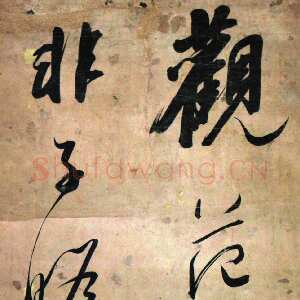 觀范
非子
Shufawang.CN